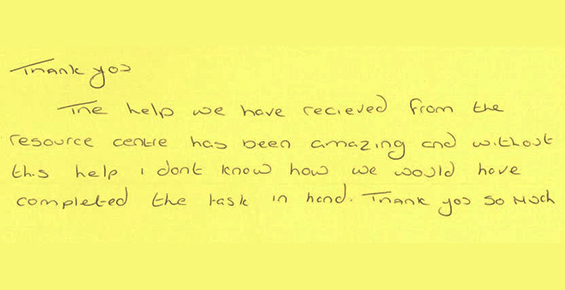 Thank you
The help we have recieved from the
resource centre has been amazing and without
this help i dont know how we would have
completed the task in hand. Thank you so much